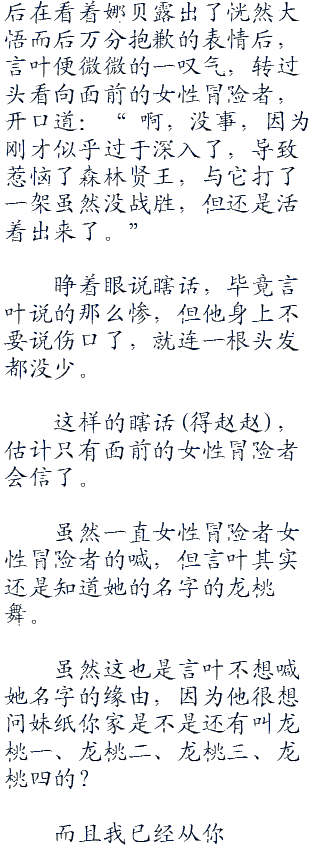 后在看着娜贝露出了恍然大
悟而后万分抱歉的表情后，
言叶便微微的一叹气，转过
头看向面前的女性冒险者，
开口道：“ 啊，没事，因为
刚才似乎过于深入了，导致
惹恼了森林贤王，与它打了
一架虽然没战胜，但还是活
着出来了。”
睁着眼说瞎话，毕竟言
叶说的那么惨，但他身上不
要说伤口了，就连一根头发
都没少。
这样的瞎话(得赵赵)，
估计只有面前的女性冒险者
会信了。
虽然一直女性冒险者女
性冒险者的喊，但言叶其实
还是知道她的名字的龙桃
舞。
虽然这也是言叶不想喊
她名字的缘由，因为他很想
问妹纸你家是不是还有叫龙
桃一、龙桃二、龙桃三、龙
桃四的？
而且我已经从你